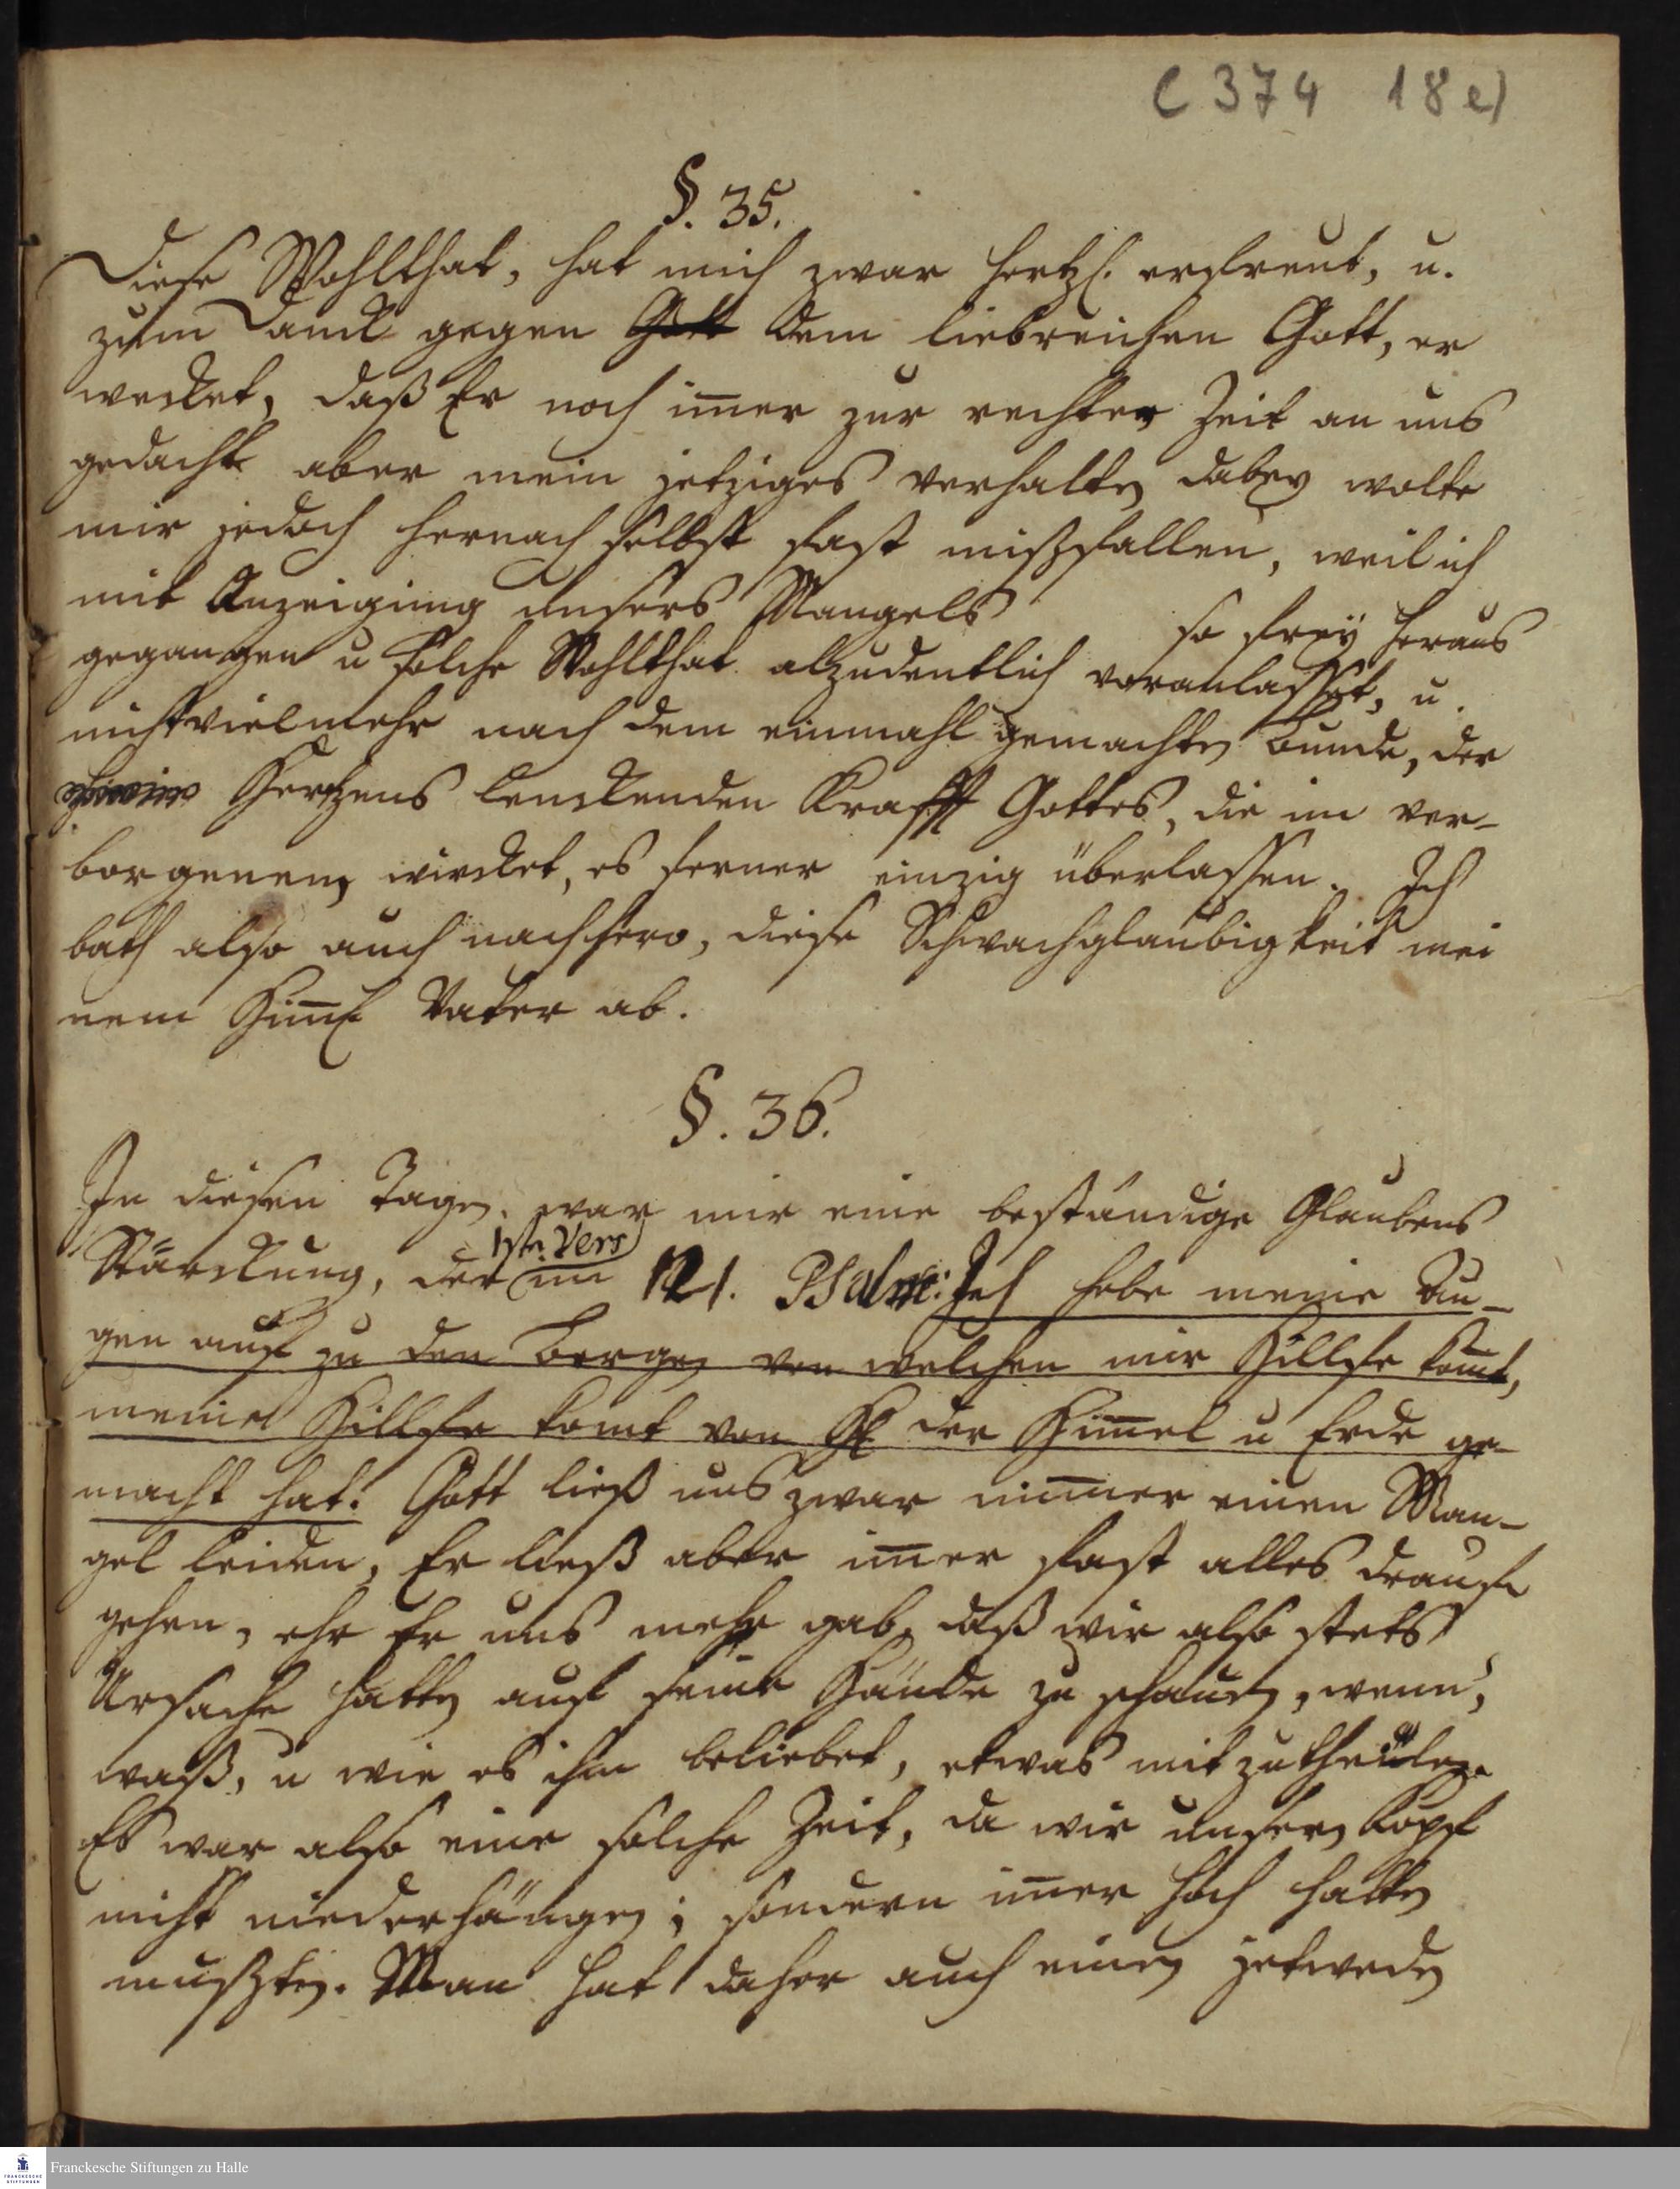 C 374 18 e)
§. 35.
Diese Wohlthat, hat mich zwar hertzl. erfreut, u.
zum Danck gegen Gott dem liebreichen Gott, er
wecket, daß Er noch im̅er zur rechten Zeit an uns
gedacht aber mein jetziges verhalten dabey wolte
mir jedoch hernach selbst fast mißfallen, weil ich
mit Anzeigung unsers Mangels so frey heraus
gegangen u solche Wohlthat alzudeutlich veranlasset, u.
nicht vielmehr nach dem einmahl gemachten Bunde, der
Hertzens lenckenden Krafft Gottes, die im ver-
borgenen wircket, es ferner einzig überlassen. Ich
bath also auch nachhero, diese Schwachgläubigkeit mei
nem Him̅l Vater ab.
§. 36.
In diesen Tagen war mir eine beständige Glaubens
1ste Vers
Stärckung, der im 121. Psalm: Ich hebe meine Au-
gen auf zu den Bergen von welchen mir Hillfe kom̅t,
meine Hillfe komt von H der Him̅el u Erde ge-
macht hat. Gott ließ uns zwar nim̅er einen Man-
gel leiden, Er ließ aber im̅er fast alles drauf
gehen, ehe Er uns mehr gab, daß wir also stets
Ursache hatten auf seine Hände zu schauen, wenn,
waß, u wie es ihm beliebet, etwas mitzutheilen.
Es war also eine solche Zeit, da wir unsern Kopf
nicht niederhängen; sondern im̅er hoch halten
mußten. Man hat daher auch einen jetweden
Franckesche Stiftungen zu Halle